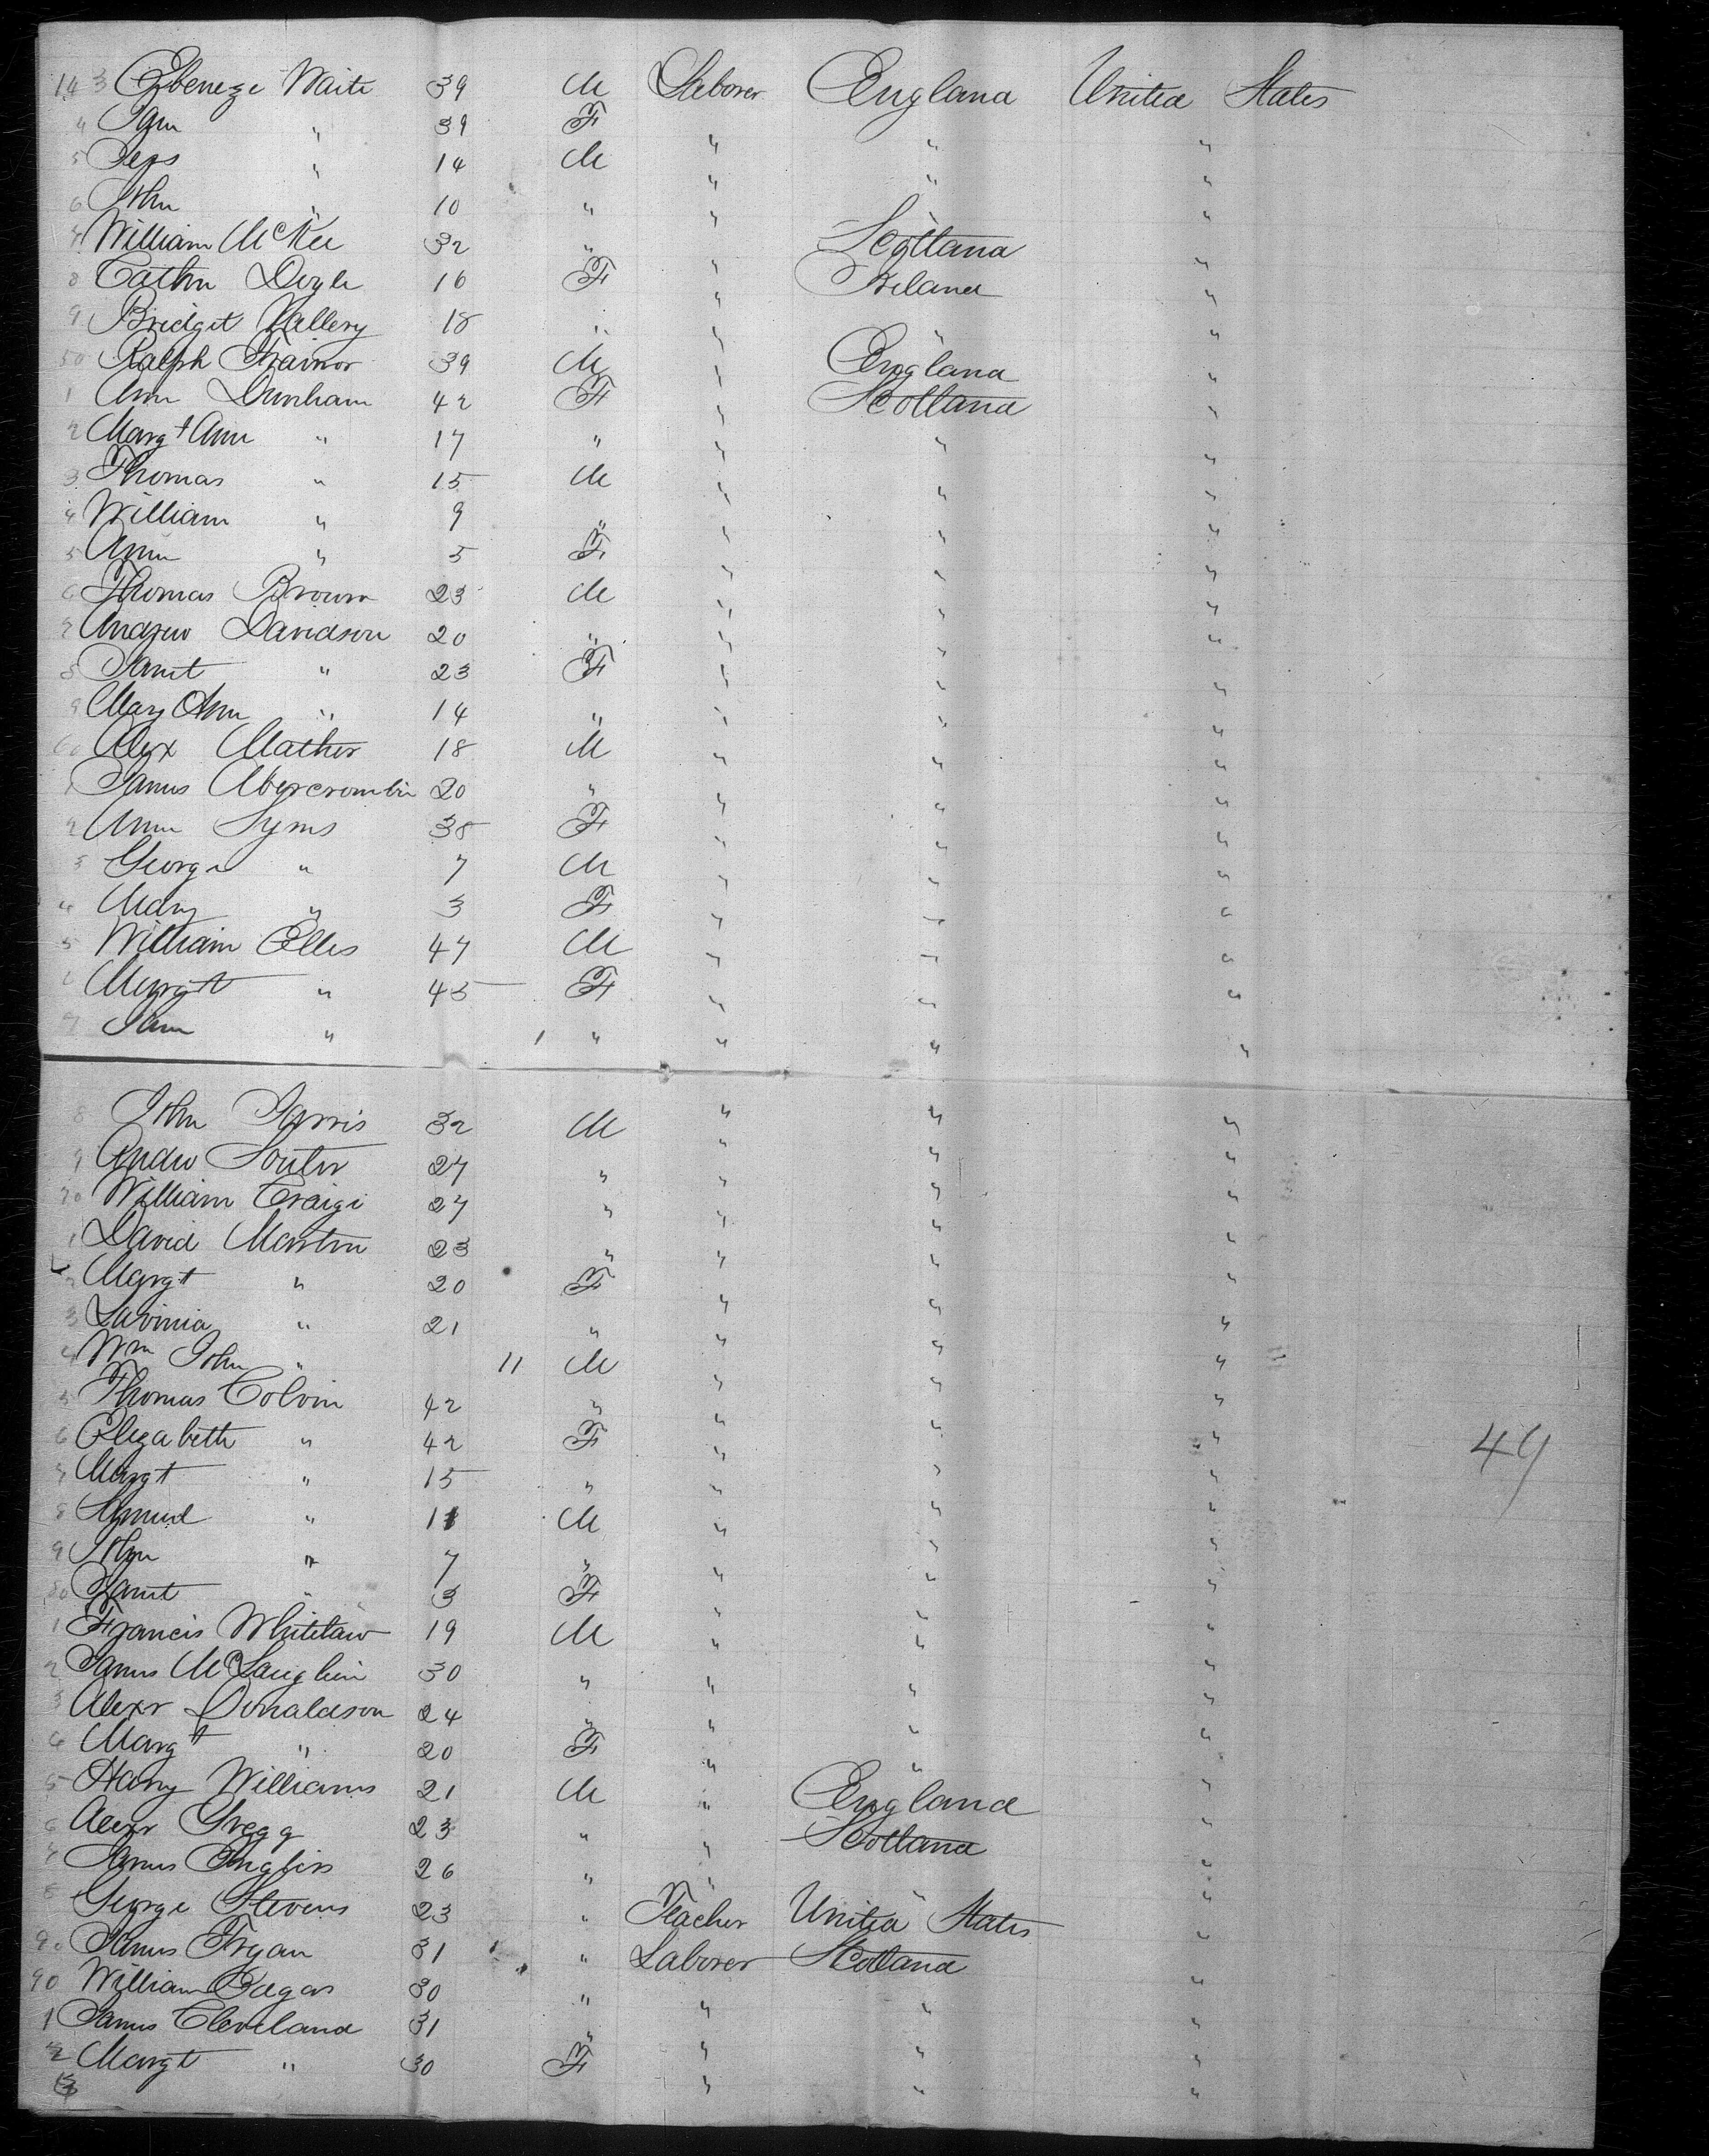 143 Ebeneze Waite 39 M Laborer England United States
4 Jane " 39 F " " "
5 " 14 M " " "
6 John " 10 " " " "
7 William McKee 32 " " Scotland "
8 Cathn Doyle 16 F " Ireland "
9 Bridget Vallery 18 " " " "
50 Ralph Trainor 39 M " England "
1 Ann Dunham 42 F " Scotland "
2 Margt Ann " 17 " " " "
3 Thomas " 15 M " " "
4 William " 9 " " " "
5 Ann " 5 F " " "
6 Thomas Brown 23 M " " "
7 Andrew Davidson 20 " " " "
8 Janet " 23 F " " "
9 Mary Ann " 14 " " " "
60 Alex Mather 18 M " " "
1 James Abercrombie 20 " " " "
2 Ann Syms 38 F " " "
3 George " 7 M " " "
4 Mary " 3 F " " "
5 William Ellis 47 M " " "
6 Margt " 45 F " " "
7 Jane " 1 " " " "
8 John Jarvis 32 M " " "
9 Andw Souter 27 " " " "
70 William Craigi 27 " " " "
1 David Martin 23 " " " "
2 Margt " 20 F " " "
3 Lavinia " 21 " " " "
4 Wm John " 11 M " " "
5 Thomas Colvin 42 " " " "
6 Elizabeth " 42 F " " "
7 Margt " 15 " " " "
8 Samuel " 11 M " " "
9 John " 7 " " " "
80 Janet " 3 F " " "
1 Francis Whitelaw 19 M " " "
2 James McLauglin 30 " " " "
3 Alexr Donaldson 24 " " " "
4 Margt " 20 F " " "
5 Harry Williams 21 M " England "
6 Alexr Gregg 23 " " Scotland "
7 James Inglis 26 " " " "
8 George Stevens 23 " Teacher United States "
90 James Fryan 31 " Laborer Scotland "
90 William Edgar 30 " " " "
1 James Cleveland 31 " " " "
2 Margt " 30 F " " "
49